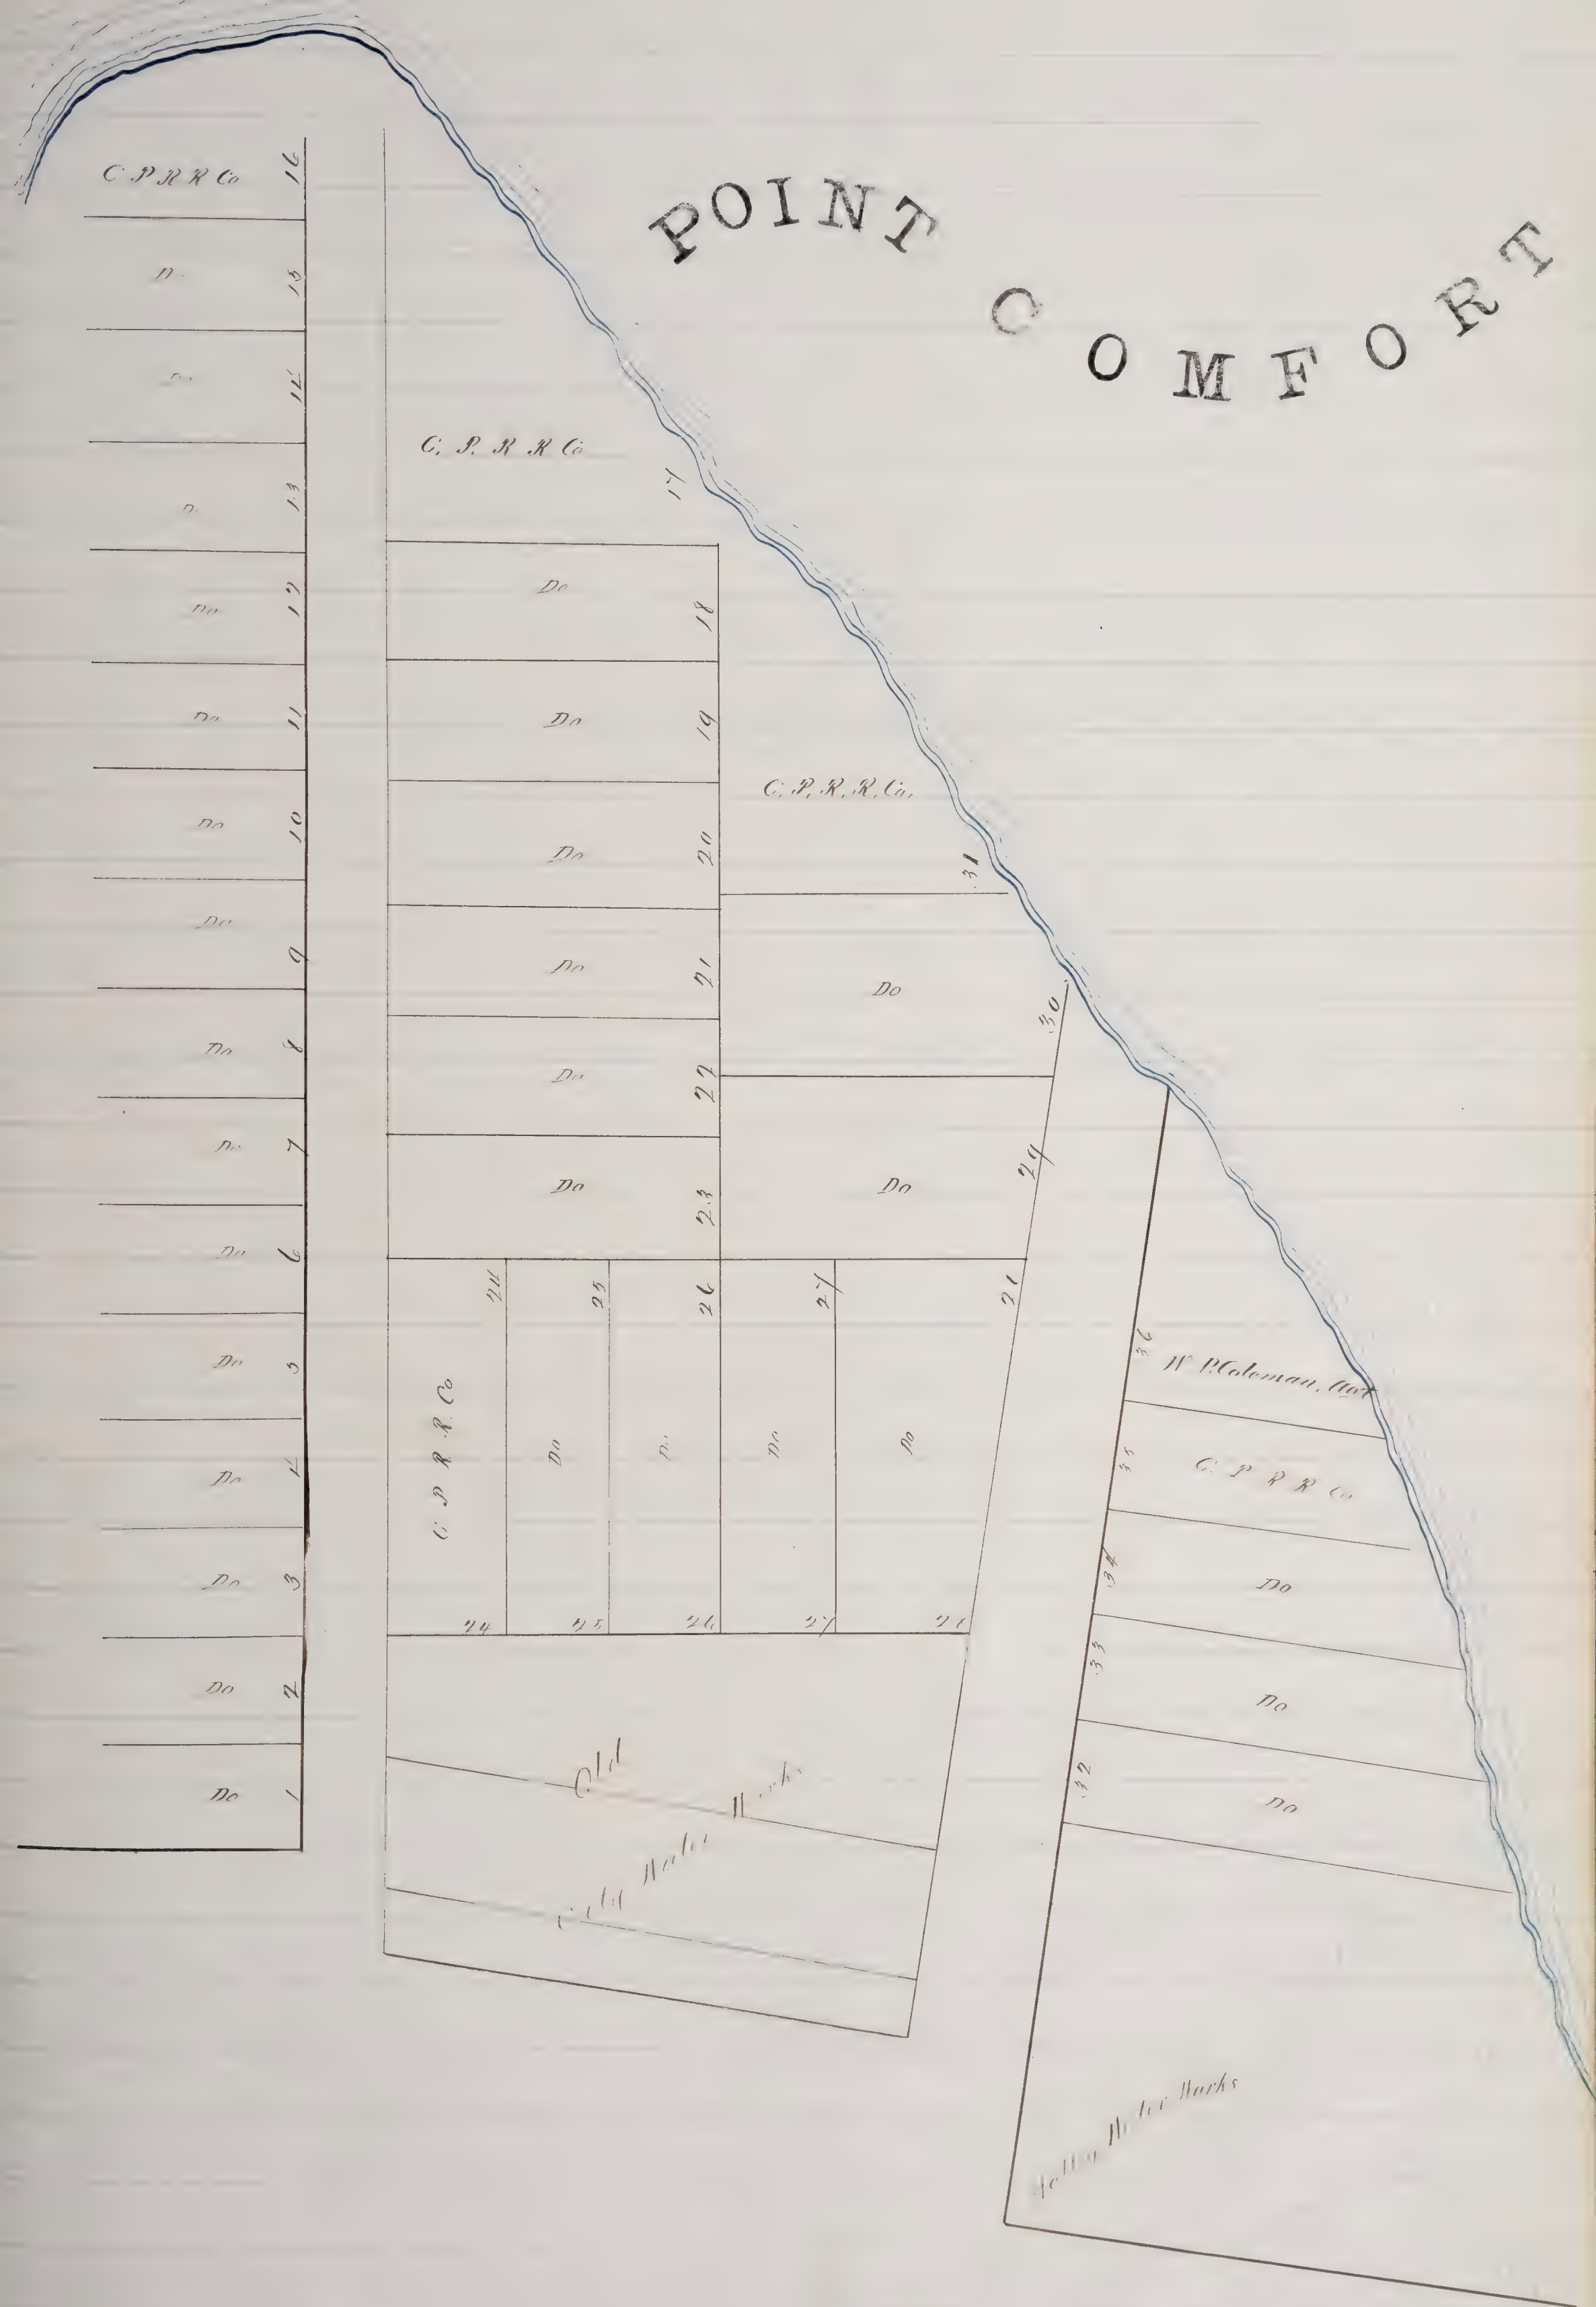 POINT COMFORT
C P R R Co 16
Do 15
Do 14
Do 13
Do 12
Do 11
Do 10
Do 9
Do 8
Do 7
Do 6
Do 5
Do 4
Do 3
Do 2
Do 1
C. P. R R Co 17
Do 18
Do 19
Do 20
Do 21
Do 22
Do 23
C. P. R. R. Co. 31
Do 30
Do 29
24 25 26 27 28
C P R R. Co Do Do Do Do
24 25 26 27 28
Old
City Water Works
36 W P. Coleman, Agt
35 C. P R R Co
34 Do
33 Do
32 Do
Water Works